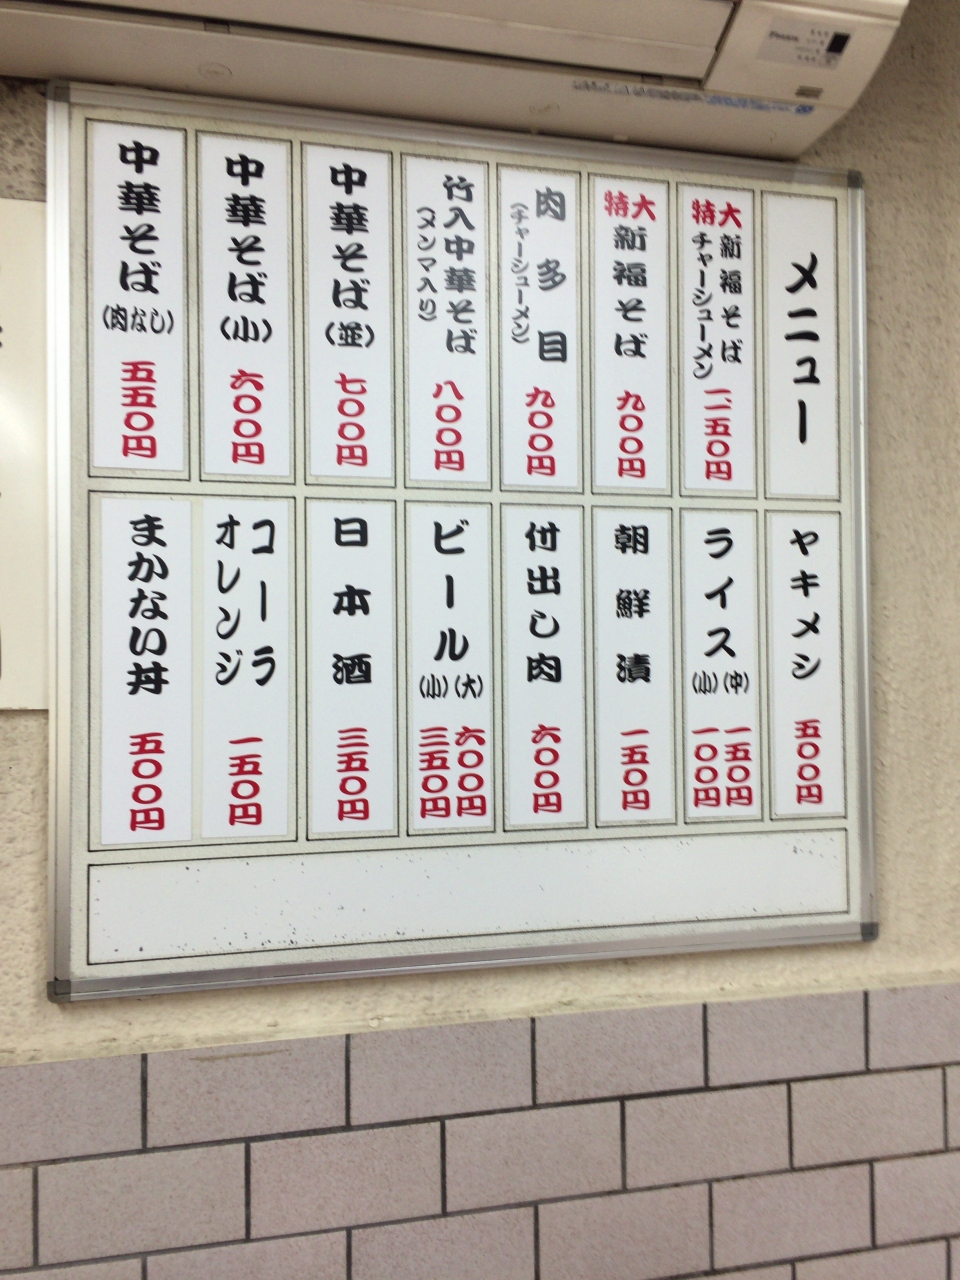 メニュー
特大
新福そば
チャーシューメン
一、一五〇円
特大
新福そば
九〇〇円
肉多目
(チャーシューメン)
九〇〇円
竹入中華そば
(メンマ入り)
八〇〇円
中華そば
(並)
七〇〇円
中華そば
(小)
六〇〇円
中華そば
(肉なし)
五五〇円
ヤキメシ
五〇〇円
ライス
(中) 一五〇円
(小) 一〇〇円
朝鮮漬
一五〇円
付出し肉
六〇〇円
ビール
(大) 六〇〇円
(小) 三五〇円
日本酒
三五〇円
コーラ
オレンジ
一五〇円
まかない丼
五〇〇円